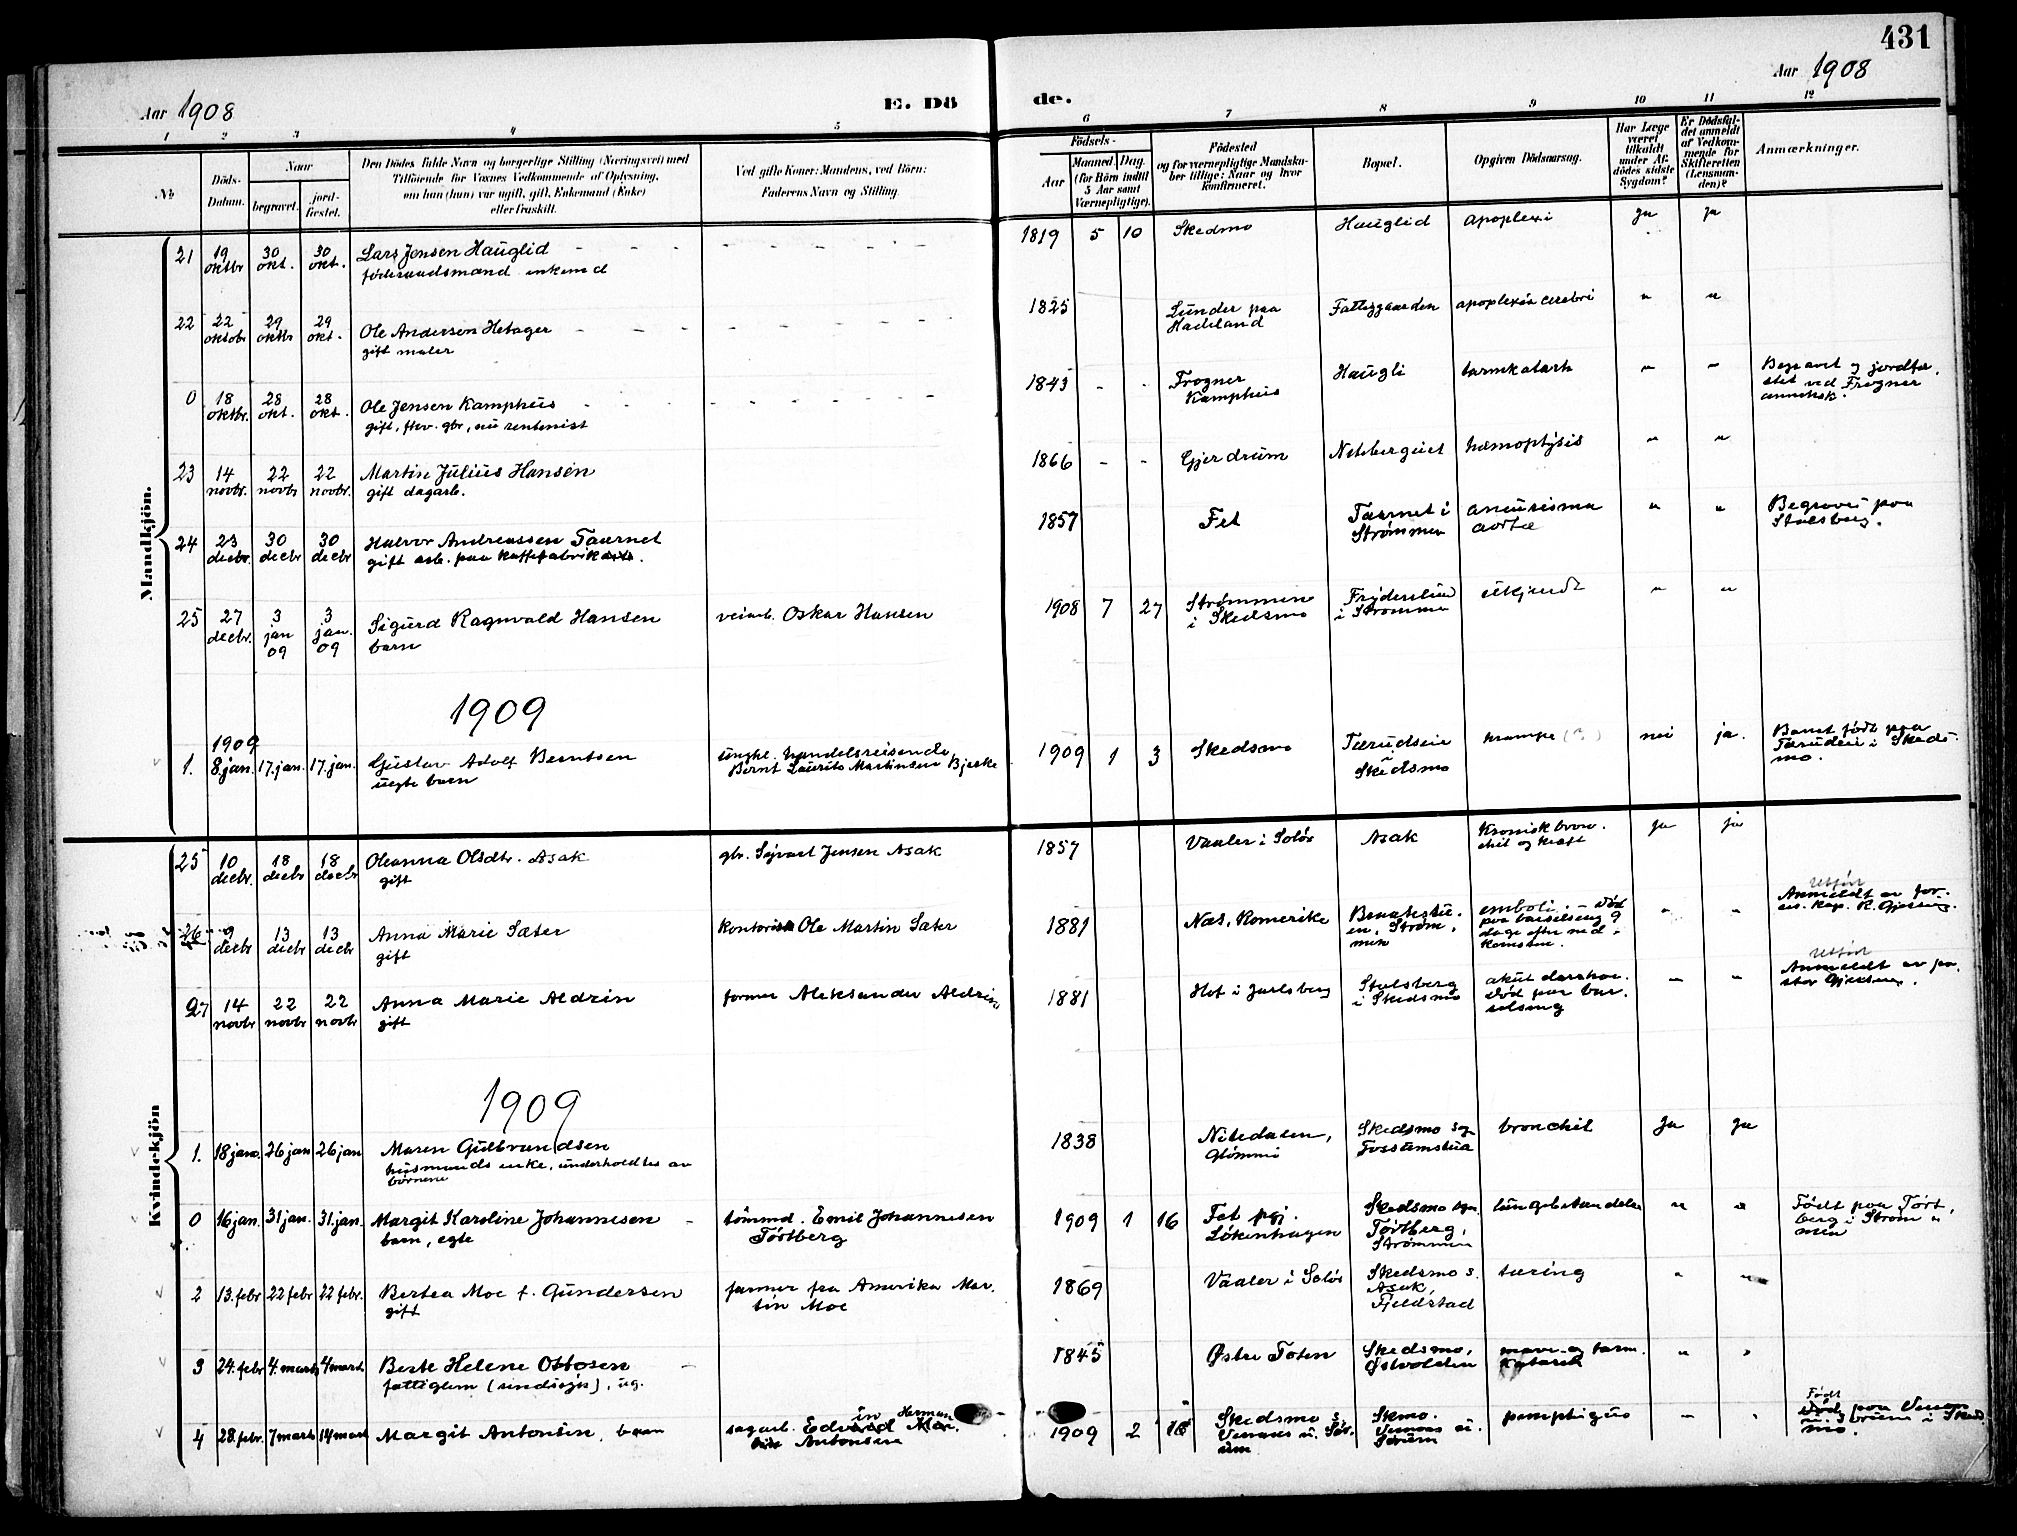 431
Aar 1908
E. Dö
de.
Aar 1908
1 2 3 4 5 6 7 8 9 10 11 12
No
Döds-Datum.
Naar
begravet.
jord-fæstet.
Den Dödes fulde Navn og borgerlige Stilling (Næringsvei) med
Tilföiende för Voxnes Vedkommende af Oplysning,
om han (hun) var ugift, gift, Enkemand (Enke)
eller fraskilt.
Ved gifte Koner: Mandens, ved Börn:
Faderens Navn og Stilling.
Födsels-
Aar
Maaned. Dag.
(for Börn indtil
5 Aar samt
Værnepligtige).
Födested
og for værnepligtige Mandskaber tillige: Naar og hvor
konfirmeret.
Bopæl.
Opgiven Dödsaarsag.
Har Læge været tilkaldt under Afdödes sidste Sygdom?
Er Dödsfaldet anmeldt af Vedkommende for Skifteretten (Lensmanden)?
Anmærkninger.
Mandkjön.
21 19 oktbr 30 okt. 30 okt. Lars Jensen Hauglid
föderaadsmand enkemd
1819 5 10 Skedsmo Hauglid apoplexi ja ja
22 22 oktobr 29 oktbr 29 okt. Ole Andersen Hetager
gift maler
1825 Lunder paa Hadeland Fattiggaarden apoplexia cerebri " "
0 18 oktbr. 28 okt. 28 okt. Ole Jensen Kamphus
gift, fhv. gbr, nu rentenist
1843 - - Frogner Kamphus Haugli tarmkatarh " " Begravet og jordfæstet ved Frogner anneksk.
23 14 novbr. 22 novbr 22 novbr. Martin Julius Hansen
gift dagarb.
1866 - - Gjerdrum Nitebergeiet hæmoptysis " "
24 23 decbr. 30 decbr 30 decbr Halvor Andreassen Taarnet
gift arb. paa kaffefabrik
1857 Fet Taarnet i Strømmen aneurisma aortæ " " Begravet paa Stalsberg.
25 27 decbr. 3 jan 09 3 jan. 09 Sigurd Ragnvald Hansen
barn
veiarb. Oskar Hansen
1908 7 27 Strømmen i Skedsmo Frydenlund i Strømmen ukjendt " "
1909
1. 1909 8 jan. 17. jan. 17. jan. Gustav Adolf Berntsen
uegte barn
ungkl. handelsreisende
Bernt Laurits Martinsen Bjerke
1909 1 3 Skedsmo Tærudeie i Skedsmo krampe (?) nei ja. Barnet født paa Tærudeie i Skedsmo.
Kvindekjön
25 10 decbr. 18 decbr 18 decbr Oleanna Olsdtr. Asak
gift
gbr. Sigvart Jensen Asak
1857 Vaaler i Solør Asak Kronisk bronchit og kræft ja ja
26 9 decbr 13 decbr 13 decbr Anna Marie Sæter
gift
kontorist Ole Martin Sæter
1881 Næs, Romerike Strømmen emboli - død paa barselseng 9 dage efter nedkomsten. " " Anmeldt av K. Gjessing.
27 14 novbr 22 novbr 22 novbr Anna Marie Aldrin
gift
former Aleksander Aldrin
1881 Hof i Jarlsberg Stalsberg i Skedsmo akut diarrhoe. Død paa barselseng " " Anmeldt av pastor Gjessing.
1909
1. 18 jan. 26 jan 26 jan Maren Gulbrandsen
husmands enke, underholdtes av
børnene
1838 Nitedalen, Glømmi Skedsmo sogn Fossumstua bronchit Ja Ja
0 16 jan. 31 jan. 31. jan Margit Karoline Johannesen
barn, egte
tømmd. Emil Johannesen
Tørtberg
1909 1 16 Fet pgj. Løkenhagen Skedsmo sgn. Tørtberg, Strømmen lungebetændelse " " Født paa Tørtberg i Strømmen
2 13. febr 22 febr 22 febr. Bertea Moe f. Gundersen
gift
farmer fra Amerika Martin Moe
1869 Vaaler i Solør Skedsmo s. Asak, Fjeldstad tæring " "
3 24. febr 4. marts 4 mart. Berte Helene Ottosen
fattiglem (sindssyg), ug.
1845 Østre Toten Skedsmo, Østvolden mave- og tarmkatarrh " "
4 28. febr. 7 marts 14 mart Margit Antonsen, barn
sagarb. Edvin Herman
Antonsen
1909 2 Skedsmo s. Skmo. pemphigus " " Født paa i Skedsmo.